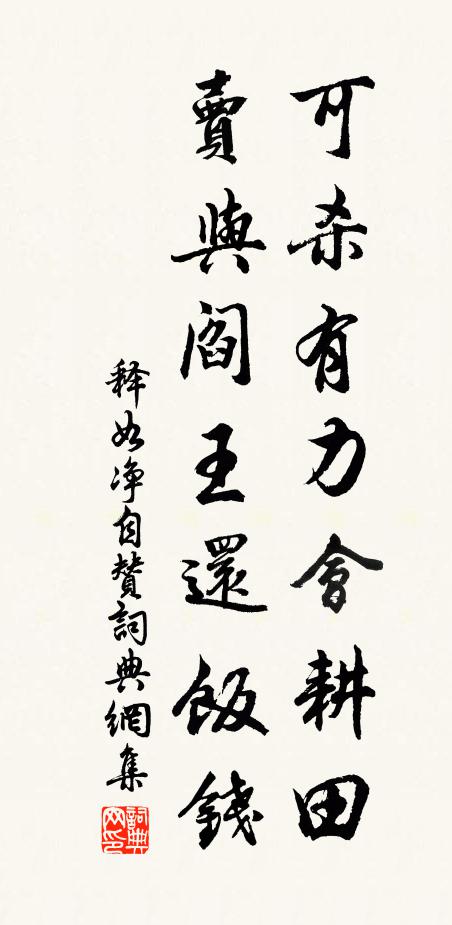 可杀有力會耕田
賣與閻王還飯錢
释如净自贊詞典網集
詞典网印